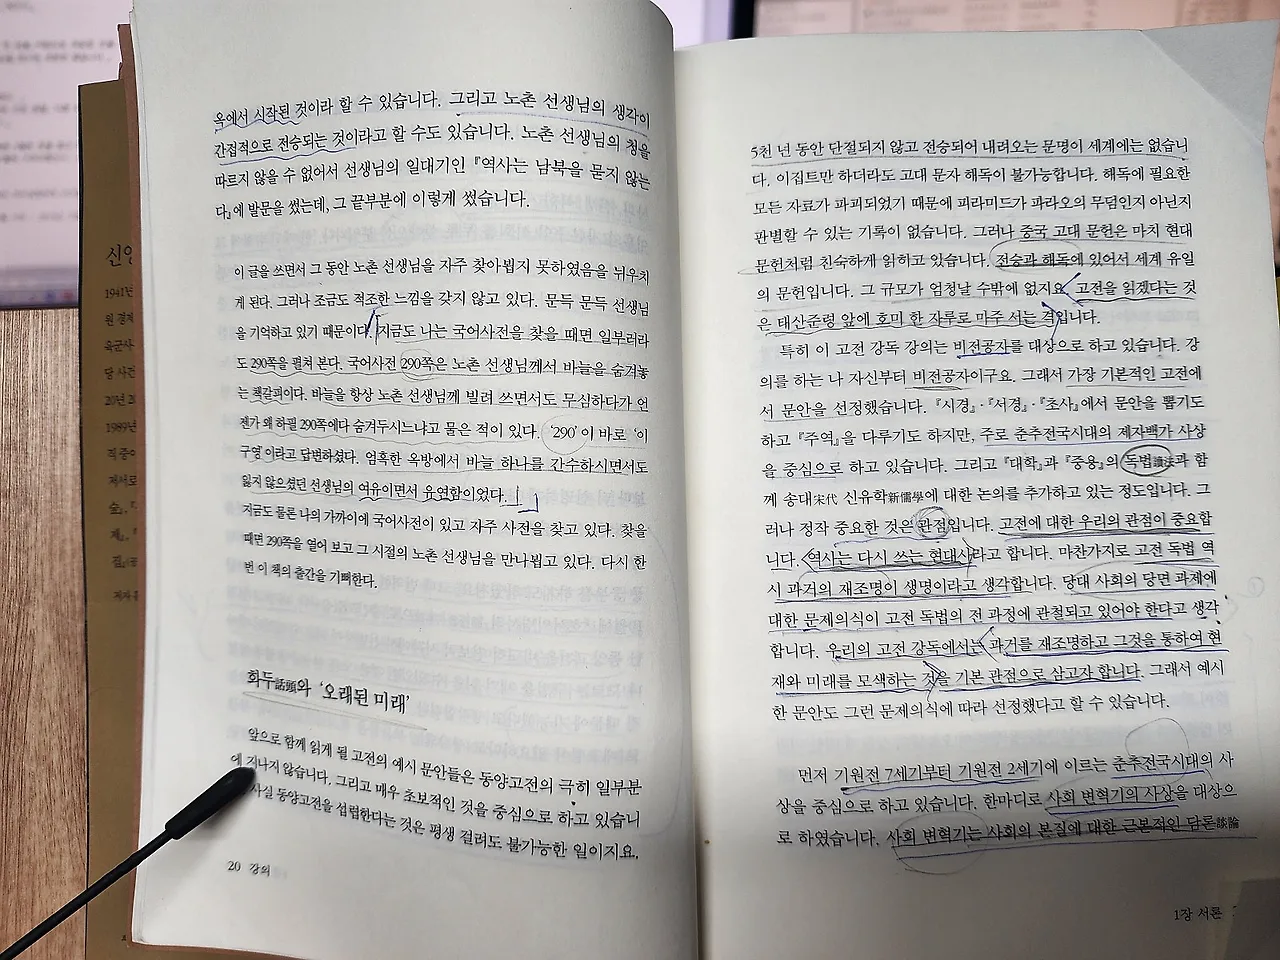 옥에서 시작된 것이라 할 수 있습니다. 그리고 노촌 선생님의 생각이
간접적으로 전승되는 것이라고 할 수도 있습니다. 노촌 선생님의 청을
따르지 않을 수 없어서 선생님의 일대기인 『역사는 남북을 묻지 않는
다』에 발문을 썼는데, 그 끝부분에 이렇게 썼습니다.
이 글을 쓰면서 그 동안 노촌 선생님을 자주 찾아뵙지 못하였음을 뉘우치
게 된다. 그러나 조금도 적조한 느낌을 갖지 않고 있다. 문득 문득 선생님
을 기억하고 있기 때문이다. 지금도 나는 국어사전을 찾을 때면 일부러라
도 290쪽을 펼쳐 본다. 국어사전 290쪽은 노촌 선생님께서 바늘을 숨겨놓
는 책갈피이다. 바늘을 항상 노촌 선생님께 빌려 쓰면서도 무심하다가 언
젠가 왜 하필 290쪽에다 숨겨두시느냐고 물은 적이 있다. ‘290’이 바로 ‘이
구영’이라고 답변하셨다. 엄혹한 옥방에서 바늘 하나를 간수하시면서도
잃지 않으셨던 선생님의 여유이면서 유연함이었다.
지금도 물론 나의 가까이에 국어사전이 있고 자주 사전을 찾고 있다. 찾을
때면 290쪽을 열어 보고 그 시절의 노촌 선생님을 만나뵙고 있다. 다시 한
번 이 책의 출간을 기뻐한다.
화두話頭와 ‘오래된 미래’
앞으로 함께 읽게 될 고전의 예시 문안들은 동양고전의 극히 일부분
에 지나지 않습니다. 그리고 매우 초보적인 것을 중심으로 하고 있습니
사실 동양고전을 섭렵한다는 것은 평생 걸려도 불가능한 일이지요.
20 강의
5천 년 동안 단절되지 않고 전승되어 내려오는 문명이 세계에는 없습니
다. 이집트만 하더라도 고대 문자 해독이 불가능합니다. 해독에 필요한
모든 자료가 파괴되었기 때문에 피라미드가 파라오의 무덤인지 아닌지
판별할 수 있는 기록이 없습니다. 그러나 중국 고대 문헌은 마치 현대
문헌처럼 친숙하게 읽히고 있습니다. 전승과 해독에 있어서 세계 유일
의 문헌입니다. 그 규모가 엄청날 수밖에 없지요. 고전을 읽겠다는 것
은 태산준령 앞에 호미 한 자루로 마주 서는 격입니다.
특히 이 고전 강독 강의는 비전공자를 대상으로 하고 있습니다. 강
의를 하는 나 자신부터 비전공자이구요. 그래서 가장 기본적인 고전에
서 문안을 선정했습니다. 『시경』·『서경』·『초사』에서 문안을 뽑기도
하고 『주역』을 다루기도 하지만, 주로 춘추전국시대의 제자백가 사상
을 중심으로 하고 있습니다. 그리고 『대학』과 『중용』의 독법讀法과 함
께 송대宋代 신유학新儒學에 대한 논의를 추가하고 있는 정도입니다. 그
러나 정작 중요한 것은 관점입니다. 고전에 대한 우리의 관점이 중요합
니다. 역사는 다시 쓰는 현대사라고 합니다. 마찬가지로 고전 독법 역
시 과거의 재조명이 생명이라고 생각합니다. 당대 사회의 당면 과제에
대한 문제의식이 고전 독법의 전 과정에 관철되고 있어야 한다고 생각
합니다. 우리의 고전 강독에서는 과거를 재조명하고 그것을 통하여 현
재와 미래를 모색하는 것을 기본 관점으로 삼고자 합니다. 그래서 예시
한 문안도 그런 문제의식에 따라 선정했다고 할 수 있습니다.
먼저 기원전 7세기부터 기원전 2세기에 이르는 춘추전국시대의 사
상을 중심으로 하고 있습니다. 한마디로 사회 변혁기의 사상을 대상으
로 하였습니다. 사회 변혁기는 사회의 본질에 대한 근본적인 담론談論
1장 서론